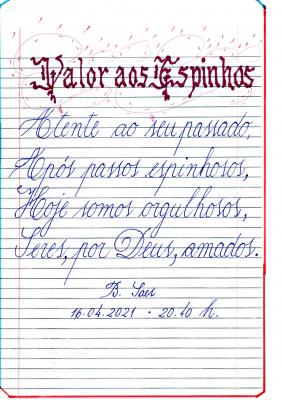 Valor aos Espinhos
Atente ao seu passado,
Após passos espinhosos,
Hoje somos orgulhosos,
Seres, por Deus, amados.
B. Saes
16.04.2021 · 20.40 h.